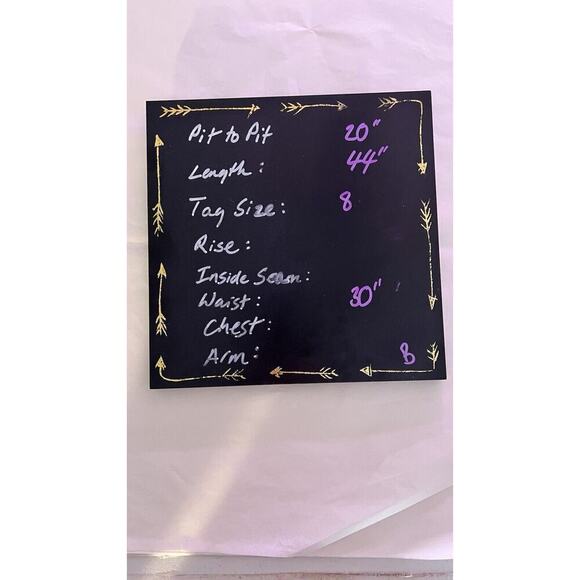 Pit to Pit 20"
Length: 44"
Tag Size: 8
Rise:
Inside Seam:
Waist: 30"
Chest:
Arm: B